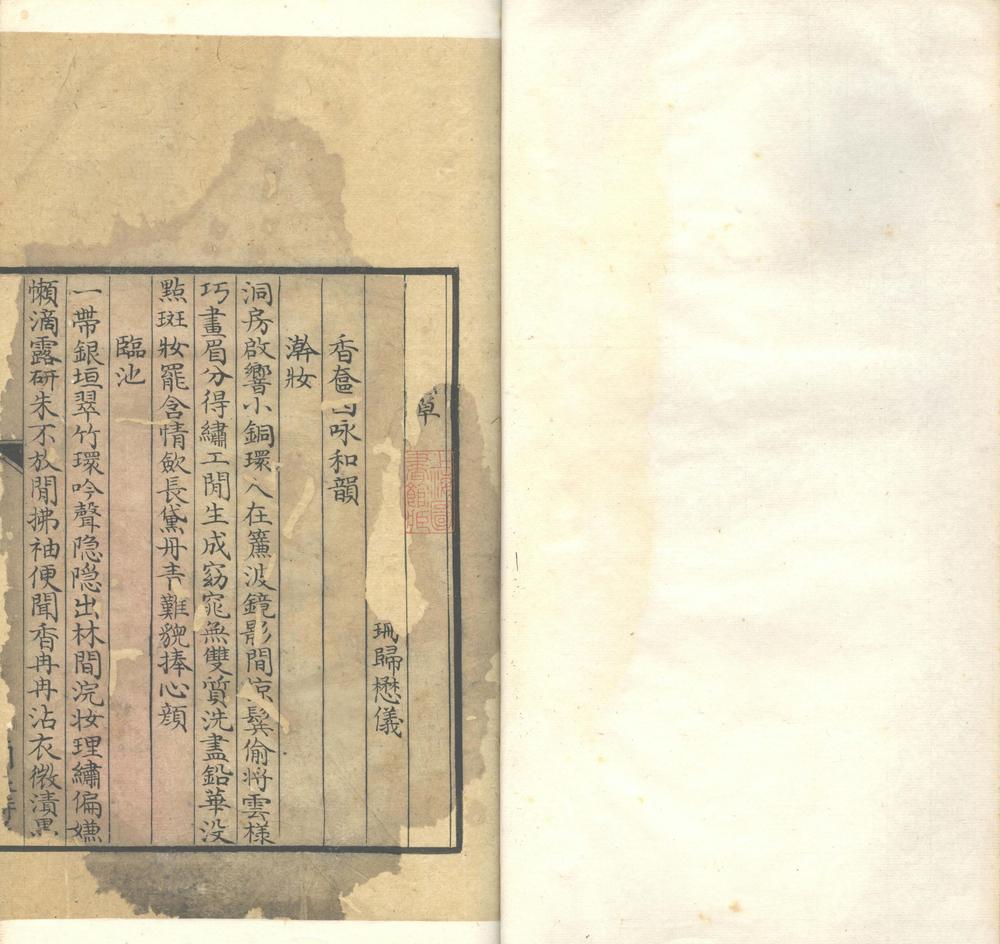 草
珮歸懋儀
香奩四咏和韻
澣妝
洞房啟響小銅環人在簾波鏡影間涼鬂偷將雲樣
巧畫眉分得繡工閒生成窈窕無雙質洗盡鉛華没
點斑妝罷含情斂長黛丹青難貌捧心顔
臨池
一帶銀垣翠竹環吟聲隐隐出林間浣妆理繡偏嫌
懶滴露研朱不放閒拂袖便聞香冉冉沾衣微漬黒
上海圖
書館藏